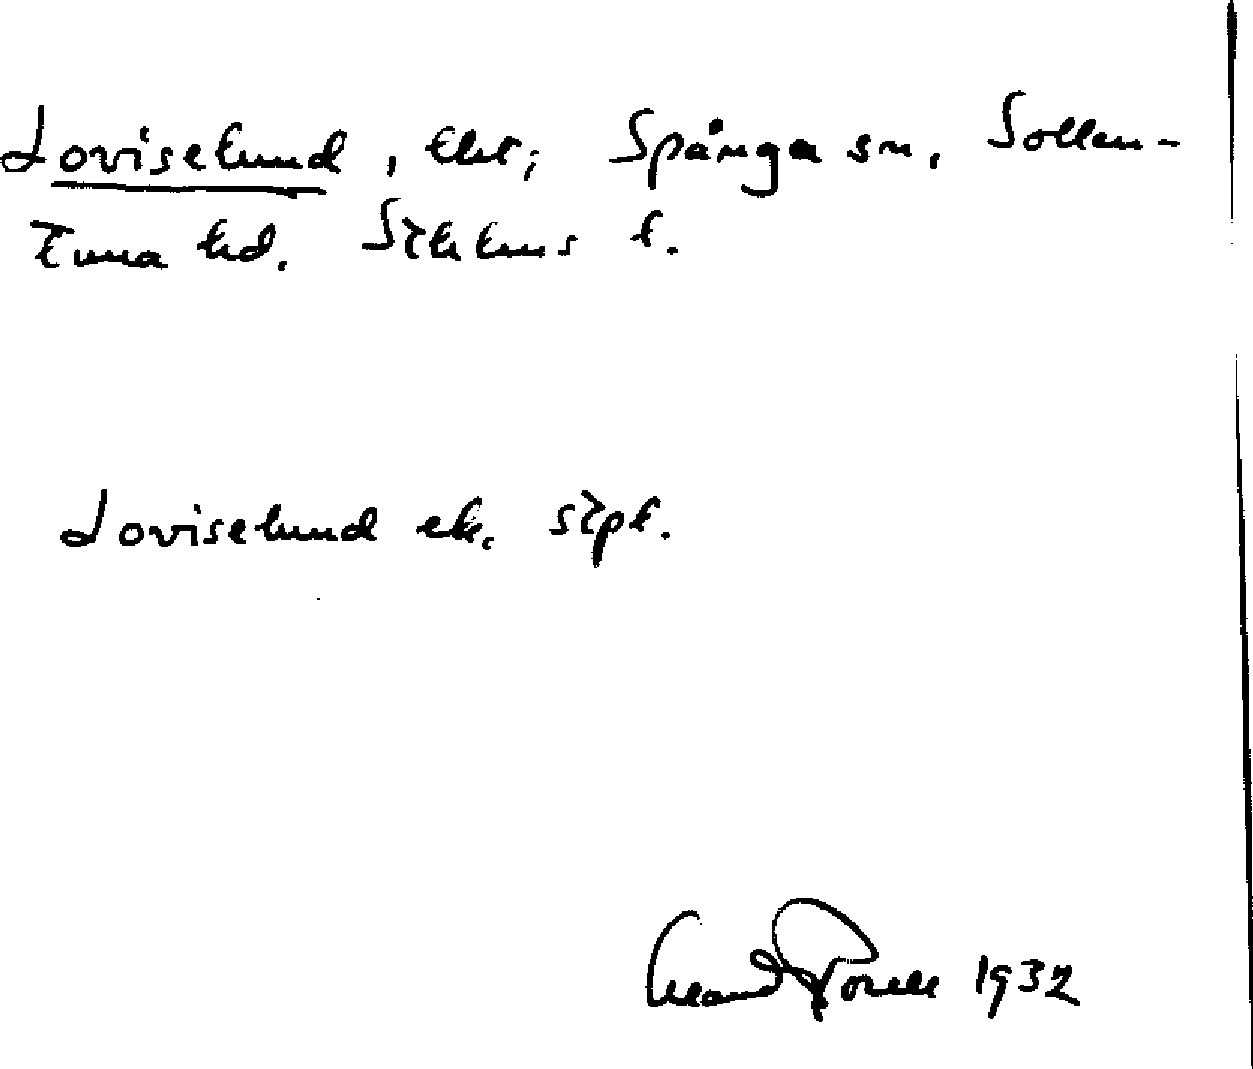 Loviselund, lht; Spånga sn, Sollen-
tuna hd. Sthlms l.
Loviselund ek. stpl.
1932